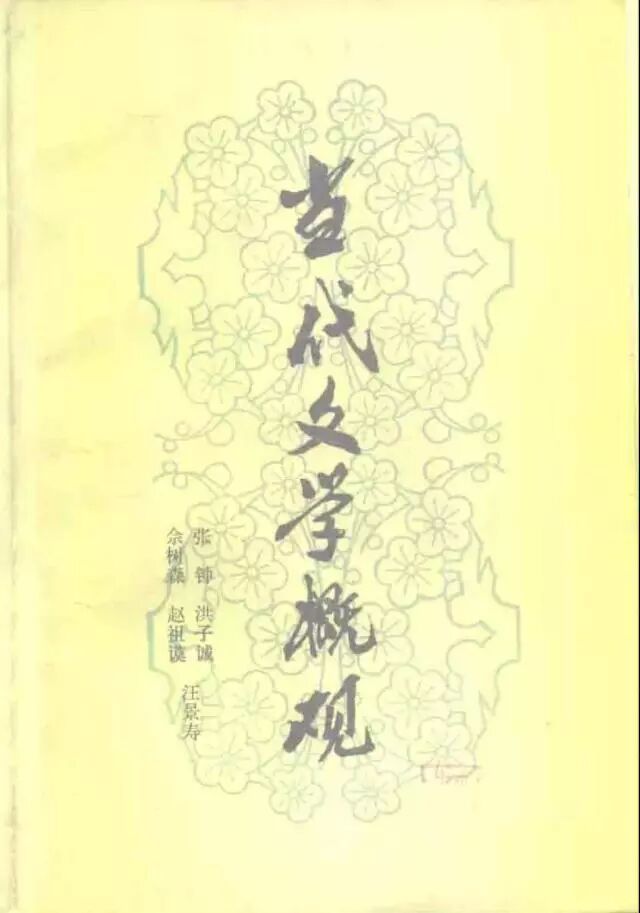 当代文学概观
张钟 洪子诚
佘树森 赵祖谟
汪景寿